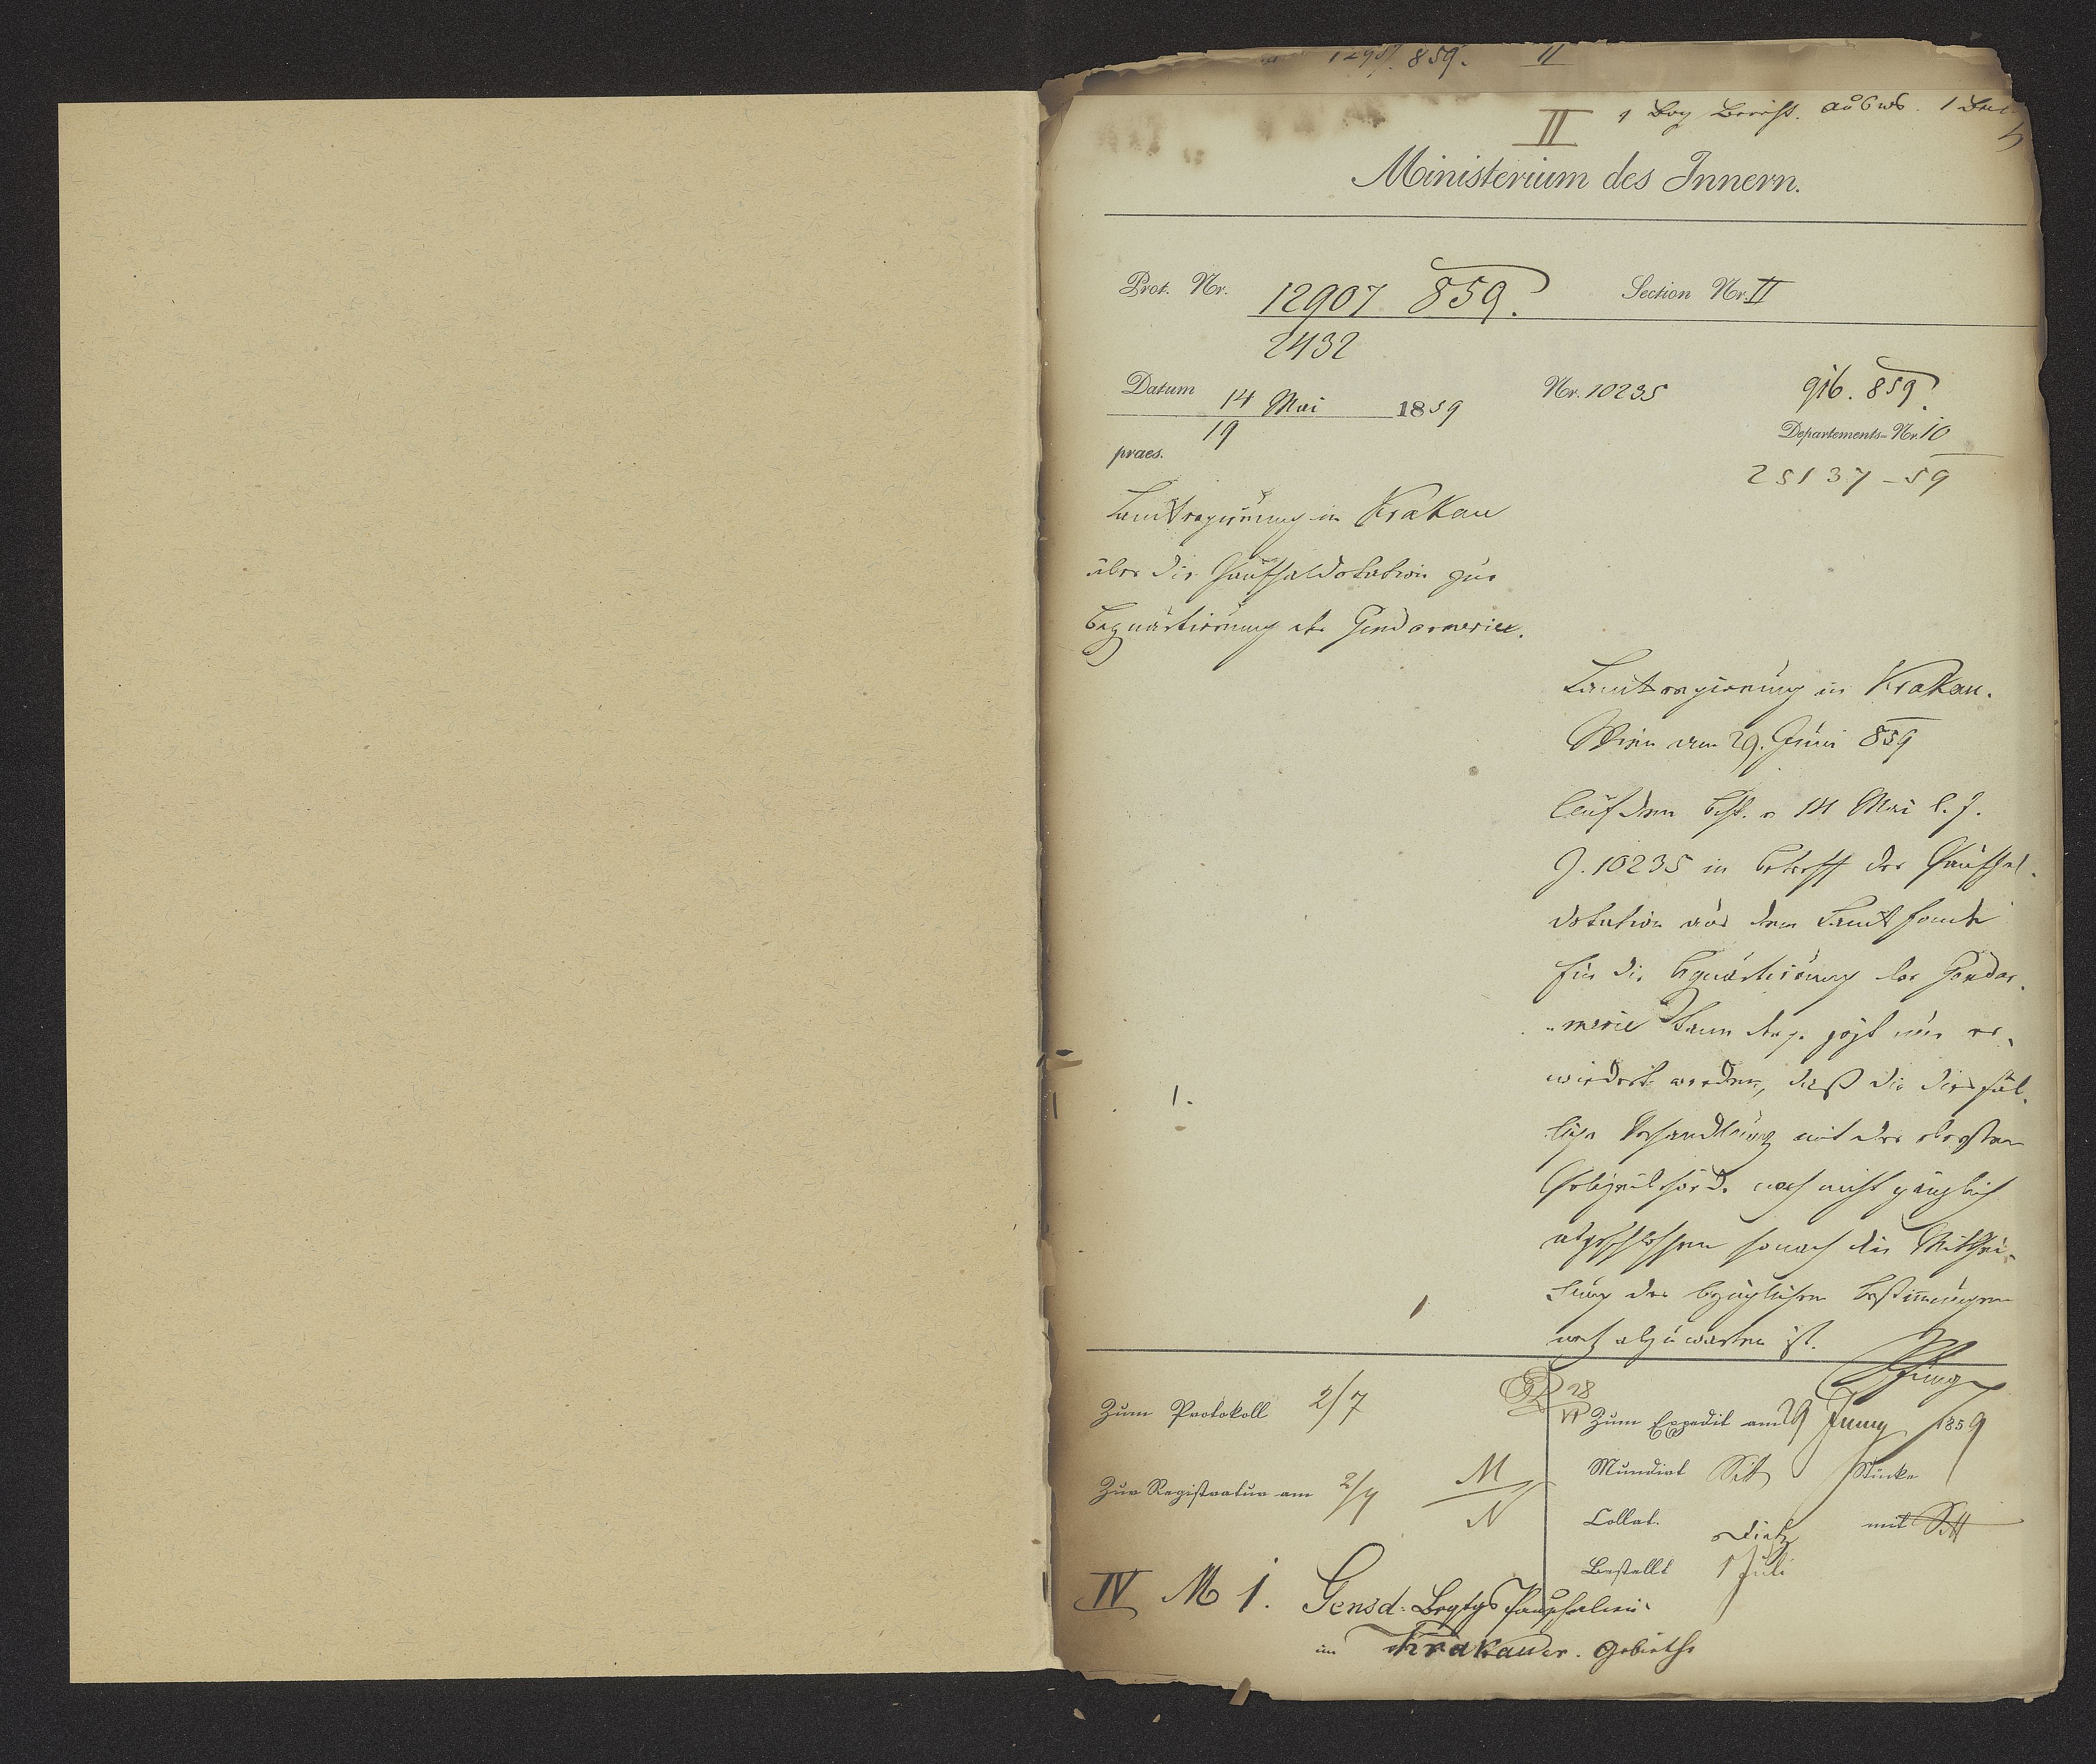 12907. 859. II
II 1 Bog Bericht. ausws. 1
Ministerium des Innern.
Prot. Nr. 12907 859. Section Nr. II
2432
Datum 14 Mai 1859 Nr. 10235 916. 859.
19 Departements-Nr. 10
praes.
25137-59
Landesregierung in Krakau
über die Pauschaldotation zur
Bequartierung der Gendarmerie.
Landesregierung in Krakau.
Wien am 29. Juni 859
Auf den Bcht. v 14 Mai l. J.
Z. 10235 in Betreff der Pauschal-
dotation aus dem Landesfonde
für die Bequartierung der Gendar-
merie kann derz. jetzt nur er-
wiedert werden, daß die diesfäl-
lige Verhandlung mit der obersten
Polizeibehörde noch nicht gänzlich
abgeschlossen sonach die Mitthei-
lung der bezüglichen Bestimungen
noch abzuwarten ist.
Zum Protokoll 2/7
28
VI Zum Expedit am 29 Juny 1859
Mundirt Sitt Stücke
Zur Registratur am 2/7 M
N
Collat. Dietz mit Sitt
Bestellt 1 Juli
IV M 1. Gensd. Beqtgs Pauschalien
im Krakauer. Gebiethe